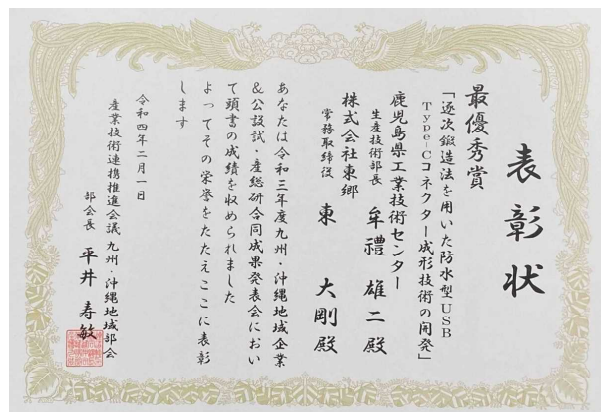 表彰状
最優秀賞
「逐次鍛造法を用いた防水型USB
Type-Cコネクター成形技術の開発」
鹿児島県工業技術センター
生産技術部長 牟禮 雄二 殿
株式会社東郷
常務取締役 東 大剛 殿
あなたは令和三年度九州・沖縄地域企業
&公設試・産総研合同成果発表会におい
て頭書の成績を収められました
よってその栄誉をたたえここに表彰
します
令和四年二月一日
産業技術連携推進会議 九州・沖縄地域部会
部会長 平井 寿敏